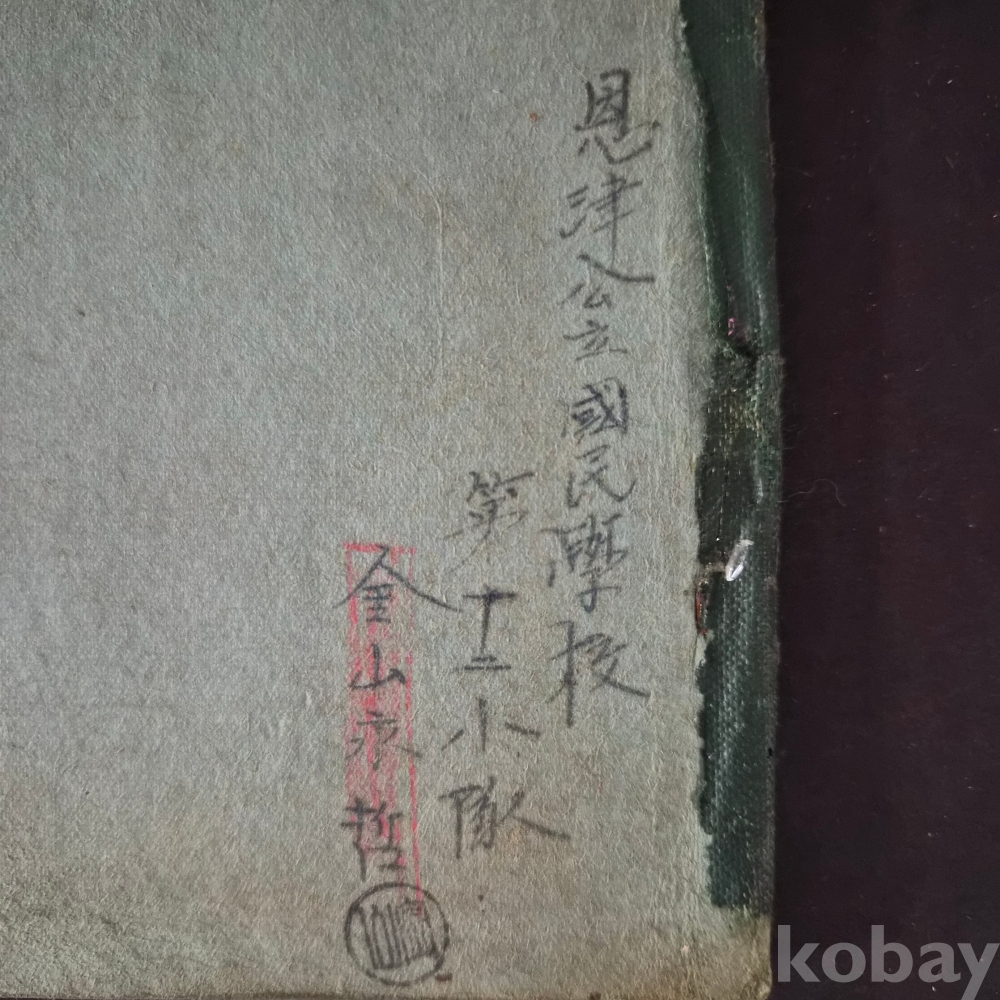 恩津公立國民學校
第十二小隊
金山永哲
kobay